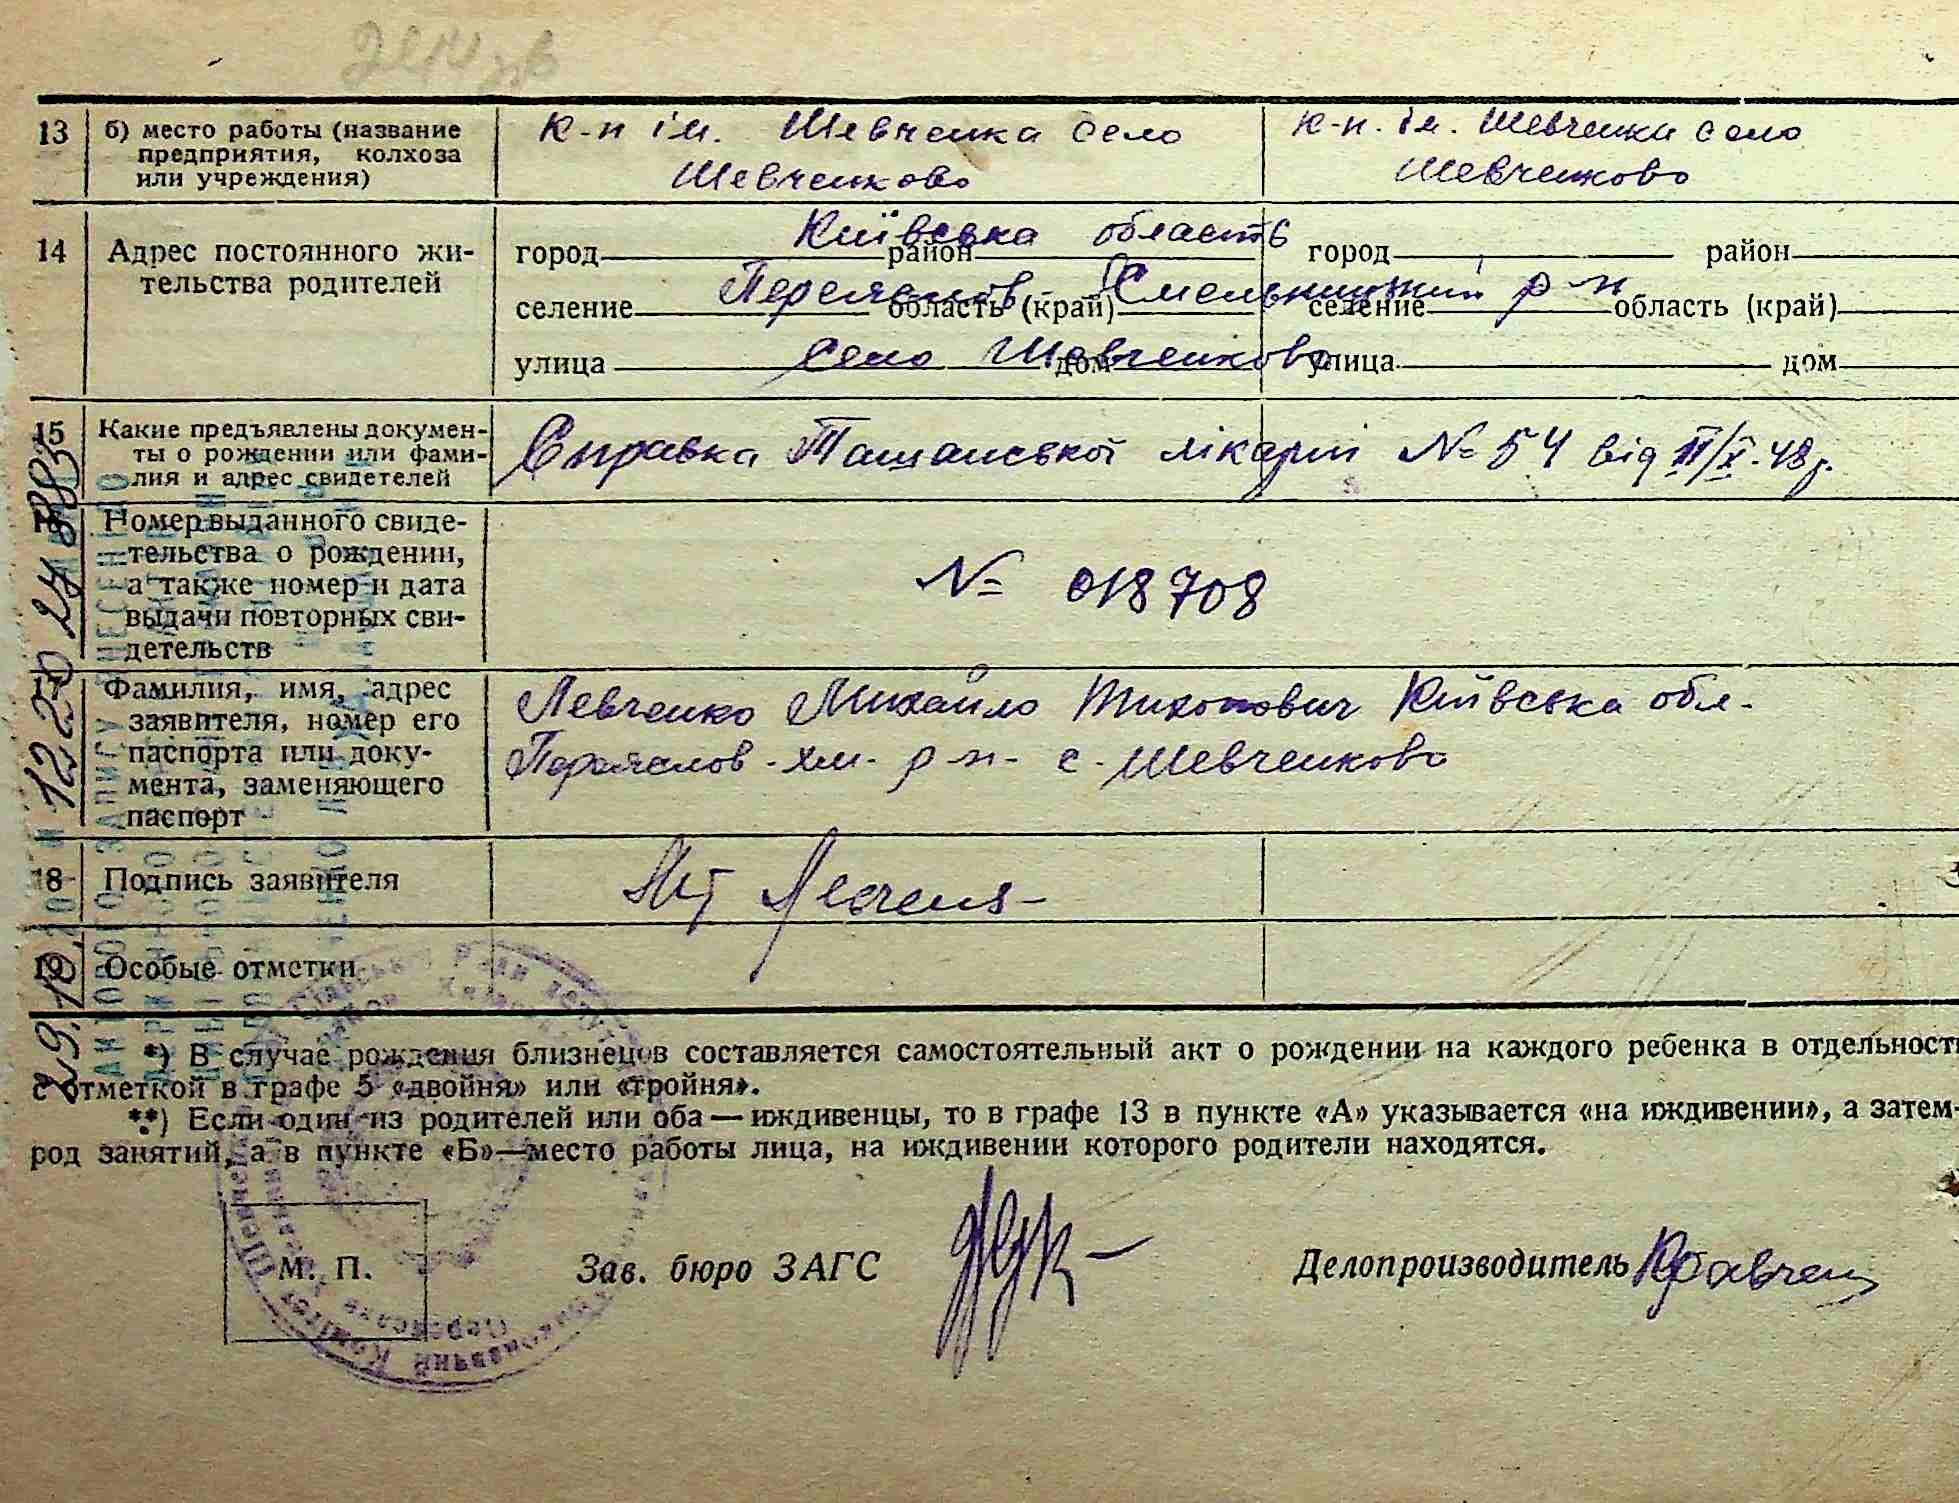 13 б) место работы (название
предприятия, колхоза
или учреждения)
к-п ім. Шевченка село
Шевченково
к-п. ім. Шевченка село
Шевченково
14 Адрес постоянного жи-
тельства родителей
Київська область
город район
город район
Переяслов Хмельницький р-н
селение область (край)
селение область (край)
село Шевченково
улица дом
улица дом
15 Какие предъявлены докумен-
ты о рождении или фами-
лия и адрес свидетелей
Справка Ташанської лікарні № 54 від II/X-48 р.
16 Номер выданного свиде-
тельства о рождении,
а также номер и дата
выдачи повторных сви-
детельств
№ 018708
17 Фамилия, имя, адрес
заявителя, номер его
паспорта или доку-
мента, заменяющего
паспорт
Левченко Михайло Тихонович Київська обл.
Переяслов-хм. р-н- с. Шевченково
18 Подпись заявителя
19 Особые отметки
*) В случае рождения близнецов составляется самостоятельный акт о рождении на каждого ребенка в отдельности
с отметкой в графе 5 «двойня» или «тройня».
**) Если один из родителей или оба — иждивенцы, то в графе 13 в пункте «А» указывается «на иждивении», а затем-
род занятий, а в пункте «Б»—место работы лица, на иждивении которого родители находятся.
М. П.
Зав. бюро ЗАГС
Делопроизводитель